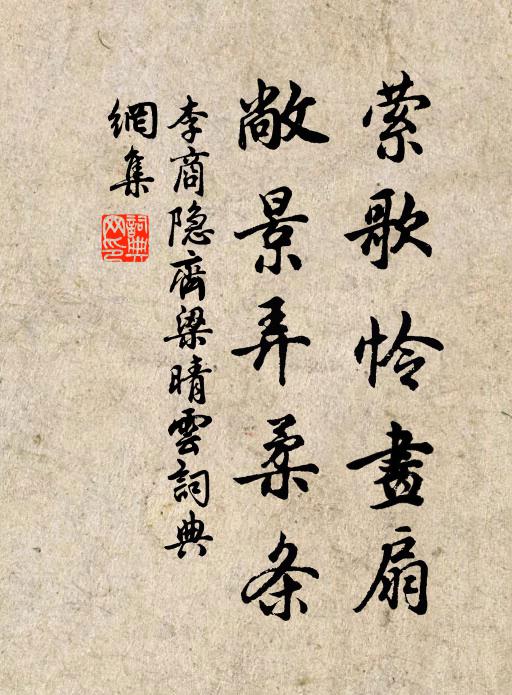 萦歌怜畫扇
敞景弄柔条
李商隐齊梁晴雲詞典
網集
詞典网印